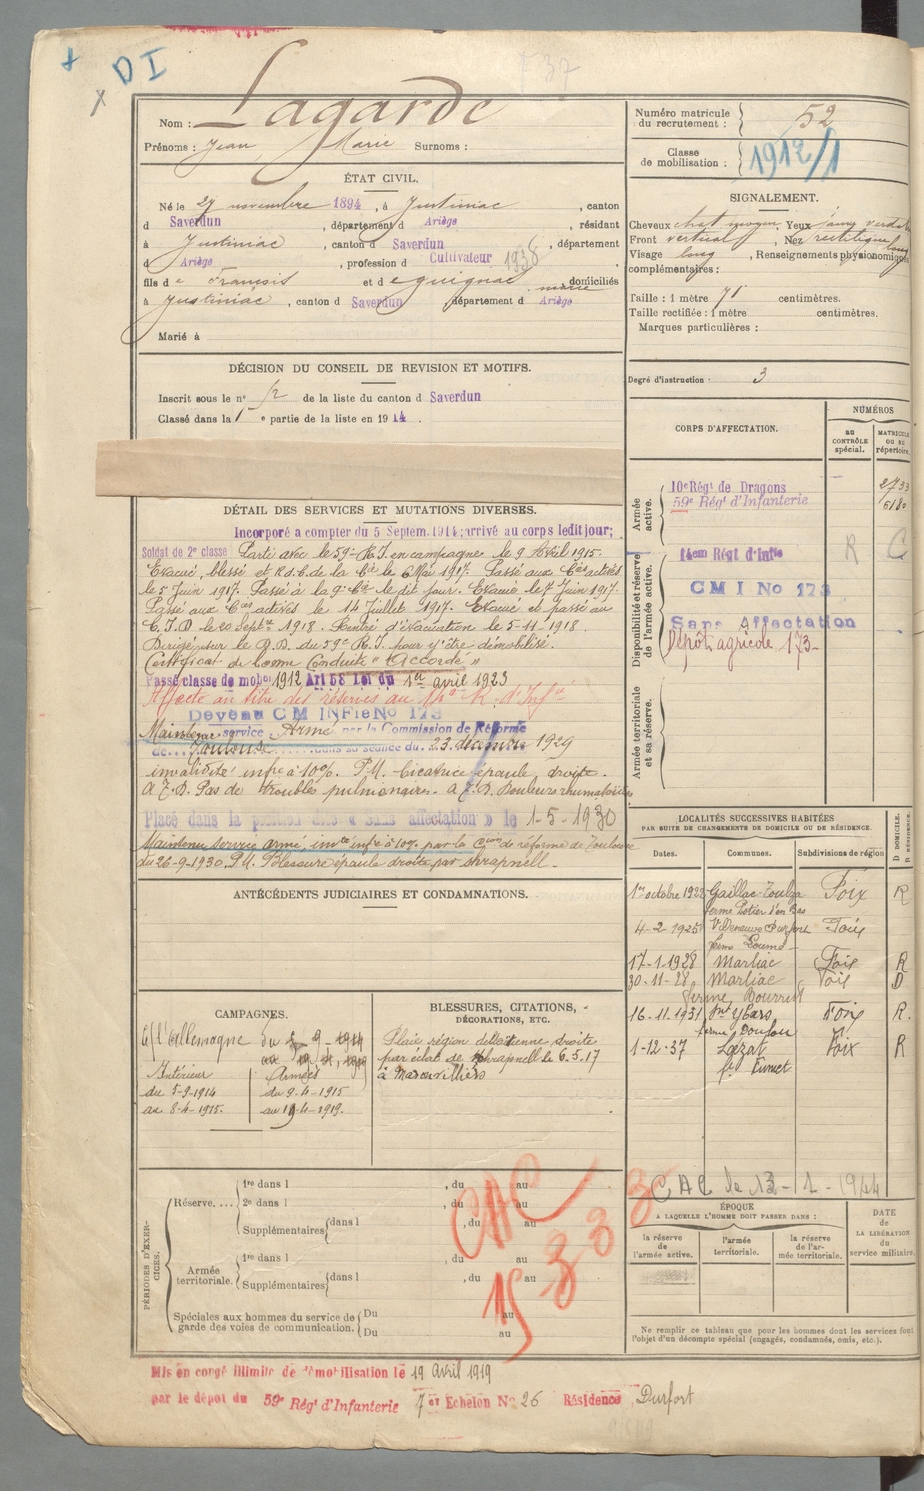 DI
Nom : Lagarde
Prénoms : Jean Marie Surnoms :
Numéro matricule du recrutement : 52
Classe de mobilisation : 1912/1
ÉTAT CIVIL.
Né le 27 novembre 1894, à Justiniac, canton
d Saverdun, département d Ariège, résidant
à Justiniac, canton d Saverdun, département
d Ariège, profession d Cultivateur
fils de François et de domiciliés
à Justiniac, canton d Saverdun département d Ariège
Marié à
SIGNALEMENT.
Cheveux chat moyen, Yeux
Front vertical, Nez rectiligne
Visage long, Renseignements physionomiques
complémentaires :
Taille : 1 mètre 71 centimètres.
Taille rectifiée : 1 mètre centimètres.
Marques particulières :
Degré d'instruction : 3
DÉCISION DU CONSEIL DE REVISION ET MOTIFS.
Inscrit sous le n° 12 de la liste du canton d Saverdun
Classé dans la 1e partie de la liste en 1914.
DÉTAIL DES SERVICES ET MUTATIONS DIVERSES.
Incorporé à compter du 5 Septem. 1914; arrivé au corps ledit jour;
Soldat de 2e classe Parti avec le 59e R.I. en campagne le 9 Avril 1915.
Evacué, blessé et R.d.C. de la Cie le 6 Mai 1917. Passé aux Cies actives
le 5 Juin 1917. Passé à la 9e Cie le dit jour. Evacué le 7 Juin 1917.
Passé aux Cies actives le 14 Juillet 1917. Evacué et passé au
C.I.D le 20 Septre 1918. Rentré d'évacuation le 5-11-1918.
Dirigé sur le D.D. du 59e R.I. pour y être démobilisé.
Certificat de bonne Conduite "Accordé"
Passé classe de mobon 1912 Art 58 Loi du 1er avril 1923
Affecté au titre des réserves au 14e R. d'Infie
Devenu CM INFie No 173
Maintenu service Armé par la Commission de Réforme
de Toulouse dans sa séance du 23 décembre 1929
invalidité infre à 10%. P.M. Cicatrice épaule droite.
A.T.D. Pas de troubles pulmonaires. A.T.D. Douleurs rhumatoïdes
Placé dans la position dite « Sans affectation » le 1-5-1930
Maintenu service armé, invté infre à 10% par la Cion de réforme de Toulouse
du 26-9-1930. P.M. Blessure épaule droite par shrapnell.
CORPS D'AFFECTATION.
NUMÉROS
au CONTRÔLE spécial.
MATRICULE OU AU répertoire.
Armée active.
10e Régt de Dragons
59e Régt d'Infanterie
Disponibilité et réserve de l'armée active.
14em Régt d'Infie R C
CM I No 173
Sans Affectation
Dépôt agricole 173
Armée territoriale et sa réserve.
LOCALITÉS SUCCESSIVES HABITÉES
PAR SUITE DE CHANGEMENTS DE DOMICILE OU DE RÉSIDENCE.
Dates. Communes. Subdivisions de région D DOMICILE. R RÉSIDENCE.
1er octobre 1922 Gaillac-Toulza Foix R
4-2-1925 Villeneuve Durfort Foix
17-1-1928 Marliac Foix R
30-11-28 Marliac Foix D
ferme Bourrut
16-11-1931 Foix R.
1-12-37 Lézat Foix R
ANTÉCÉDENTS JUDICIAIRES ET CONDAMNATIONS.
CAMPAGNES.
C/ l'Allemagne du 5-9-1914
Intérieur Armées
du 5-9-1914 du 9-4-1915
au 8-4-1915. au 19-4-1919.
BLESSURES, CITATIONS,
DÉCORATIONS, ETC.
Plaie région deltoïdienne droite
par éclat de shrapnell le 6.5.17
à
CAC le 13-1-1944
PÉRIODES D'EXERCICES.
Réserve.... 1re dans l , du au
2e dans l , du au
Supplémentaires dans l , du au
Armée territoriale. 1re dans l , du au
Supplémentaires dans l , du au
Spéciales aux hommes du service de garde des voies de communication. Du au
Du au
CAC
ÉPOQUE
A LAQUELLE L'HOMME DOIT PASSER DANS :
la réserve de l'armée active.
l'armée territoriale.
la réserve de l'armée territoriale.
DATE de LA LIBÉRATION du service militaire.
Ne remplir ce tableau que pour les hommes dont les services font
l'objet d'un décompte spécial (engagés, condamnés, omis, etc.).
Mis en congé illimité de démobilisation le 19 avril 1919
par le dépôt du 59e Régt d'Infanterie 7e Echelon No 26 Résidence Durfort